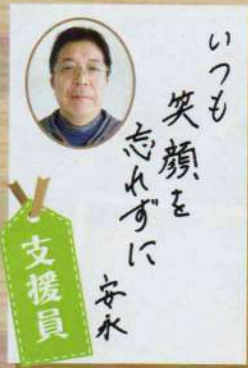 いつも
笑顔を
忘れずに
安永
支援員